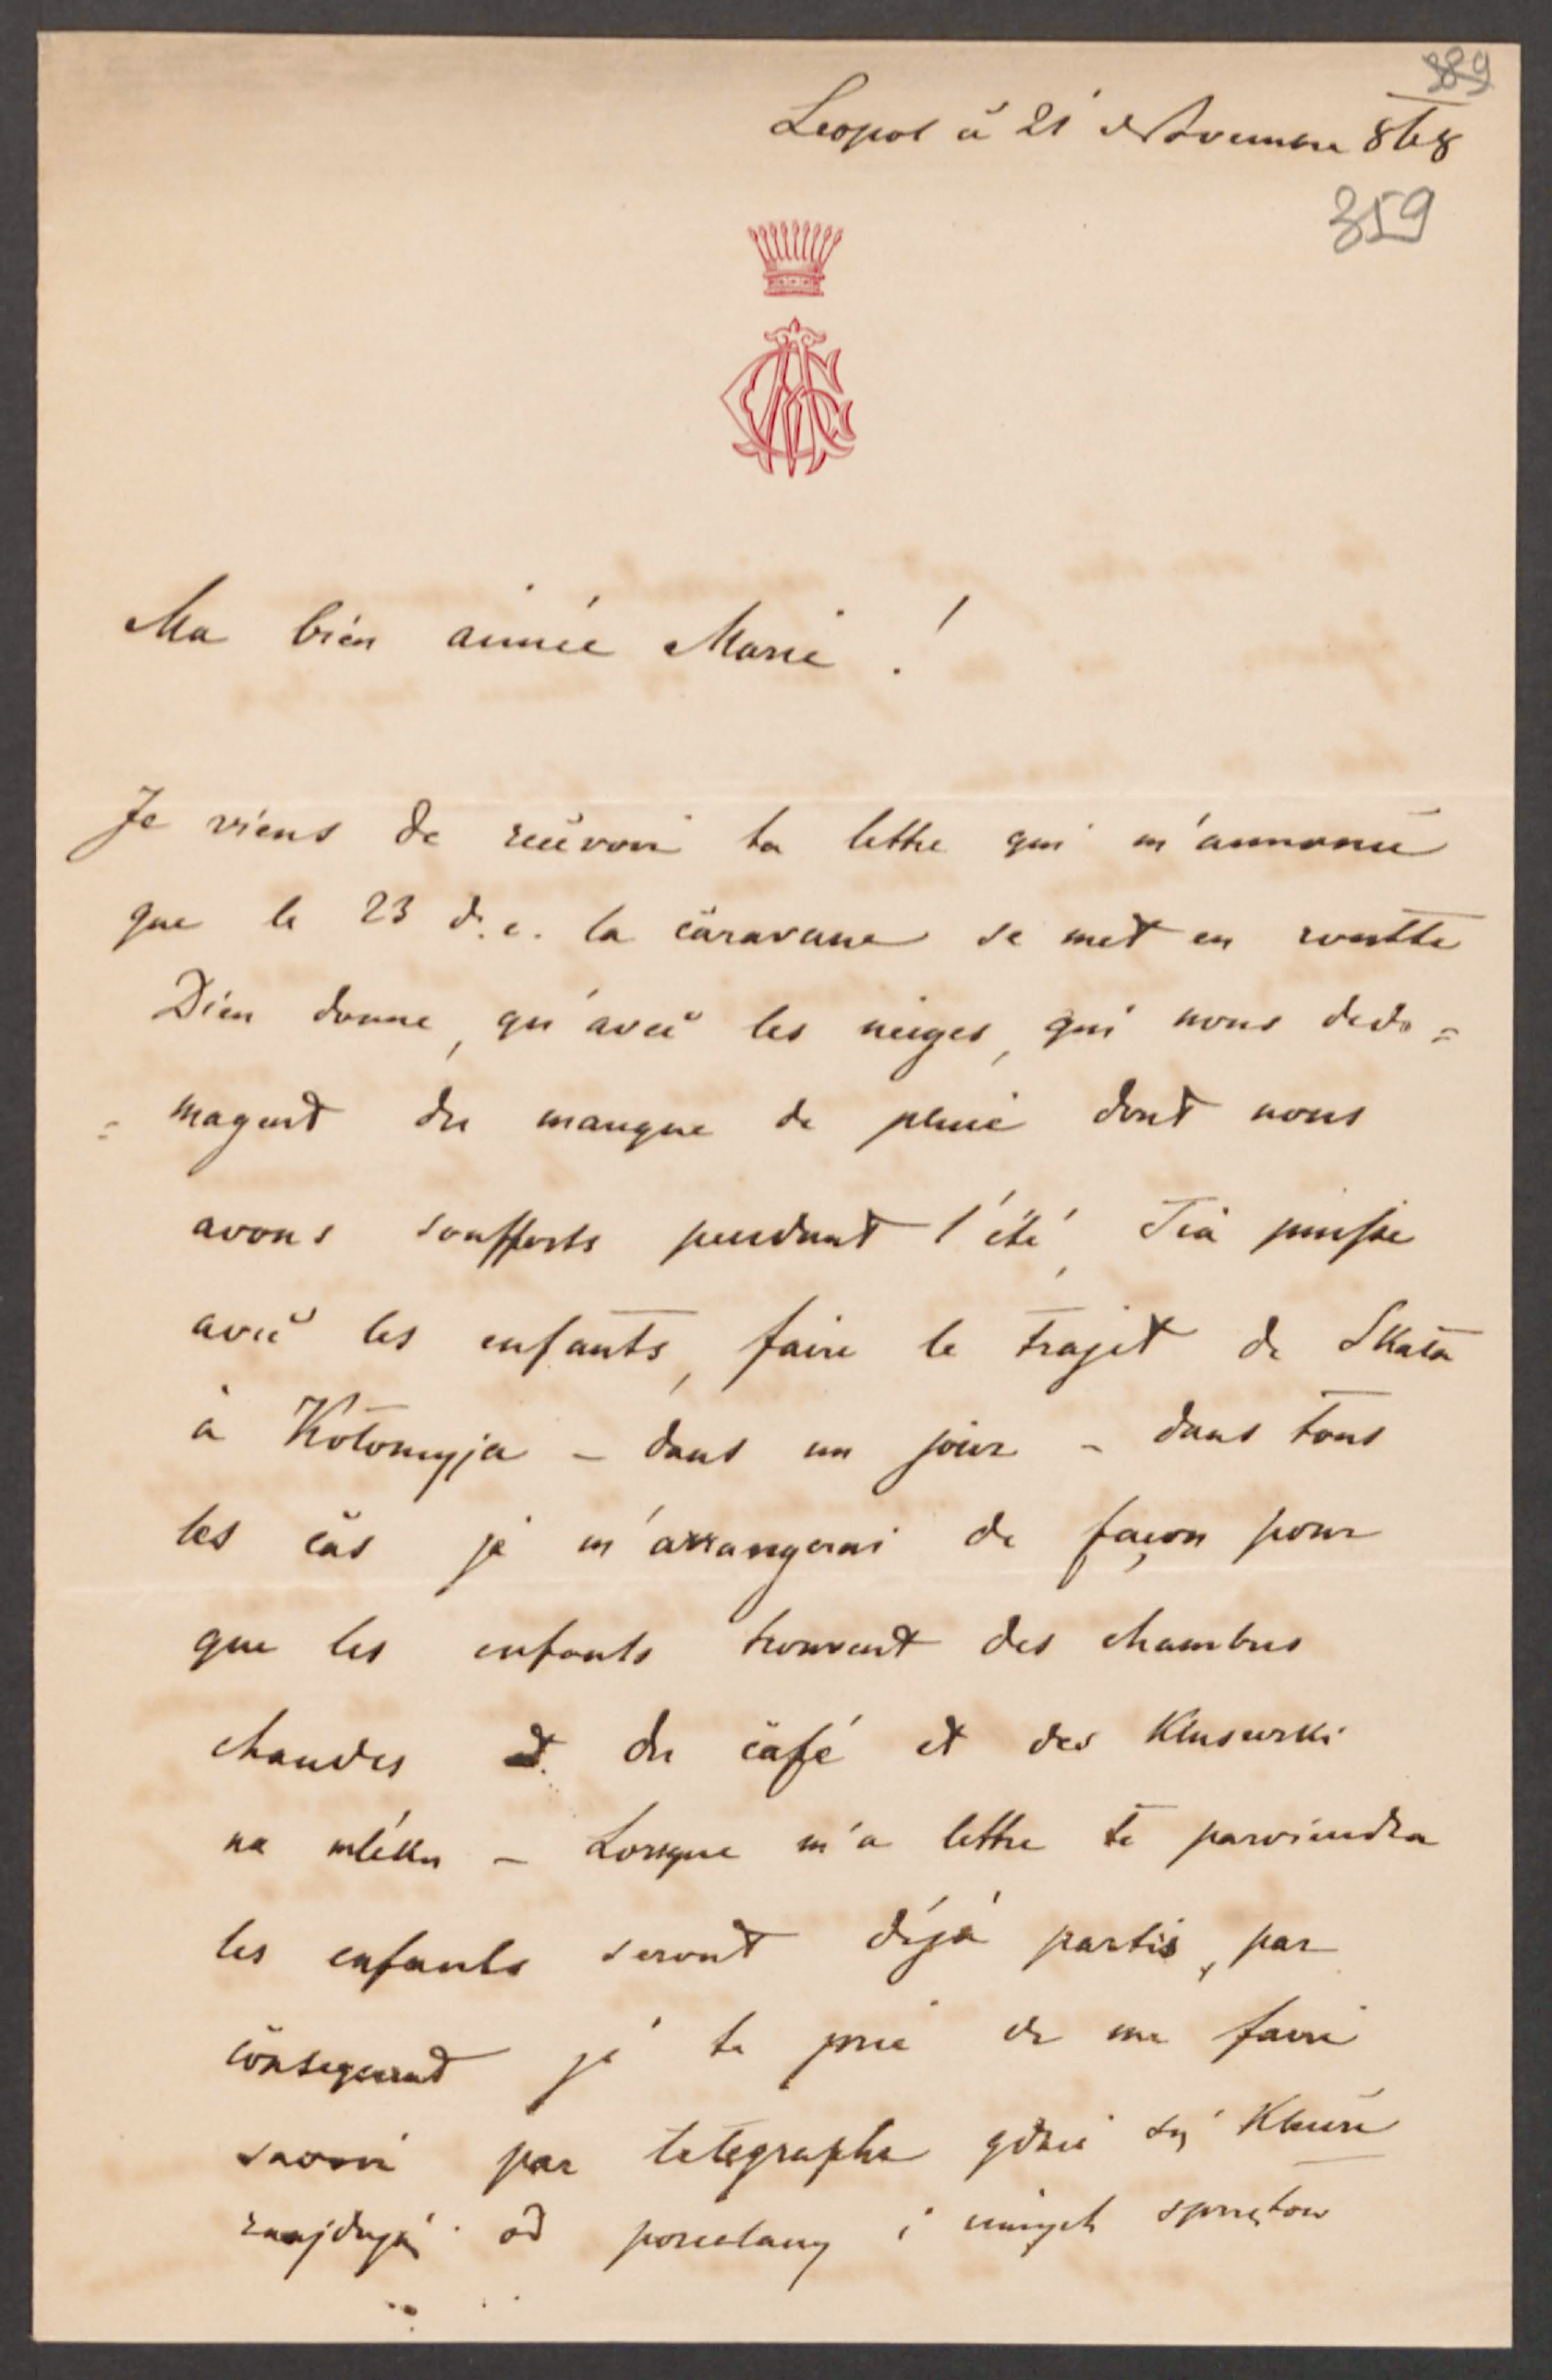 389
Leopol à 21 Novembre 868
359
Ma bien aimée Marie !
Je viens de recevoir ta lettre qui m'annonce
que le 23 d. c. la caravane se met en routte
Dieu donne, qu'avec les neiges, qui nous dedo=
=magent du manque de pluie dont nous
avons soufferts pendant l'été, puisse
avec les enfants, faire le trajet de Skala
à Kołomyja – dans un jour – dans tous
les cas je m'arrangerai de façon pour
que les enfants trouvent des chambres
chaudes et du café et des kluseczki
na mléku – Lorsque m'a lettre te parviendra
les enfants seront déjà partis, par
consequent je te prie de me faire
savoir par telegraphe gdzie są klucze
znajdują od porcelany i innych sprzętow